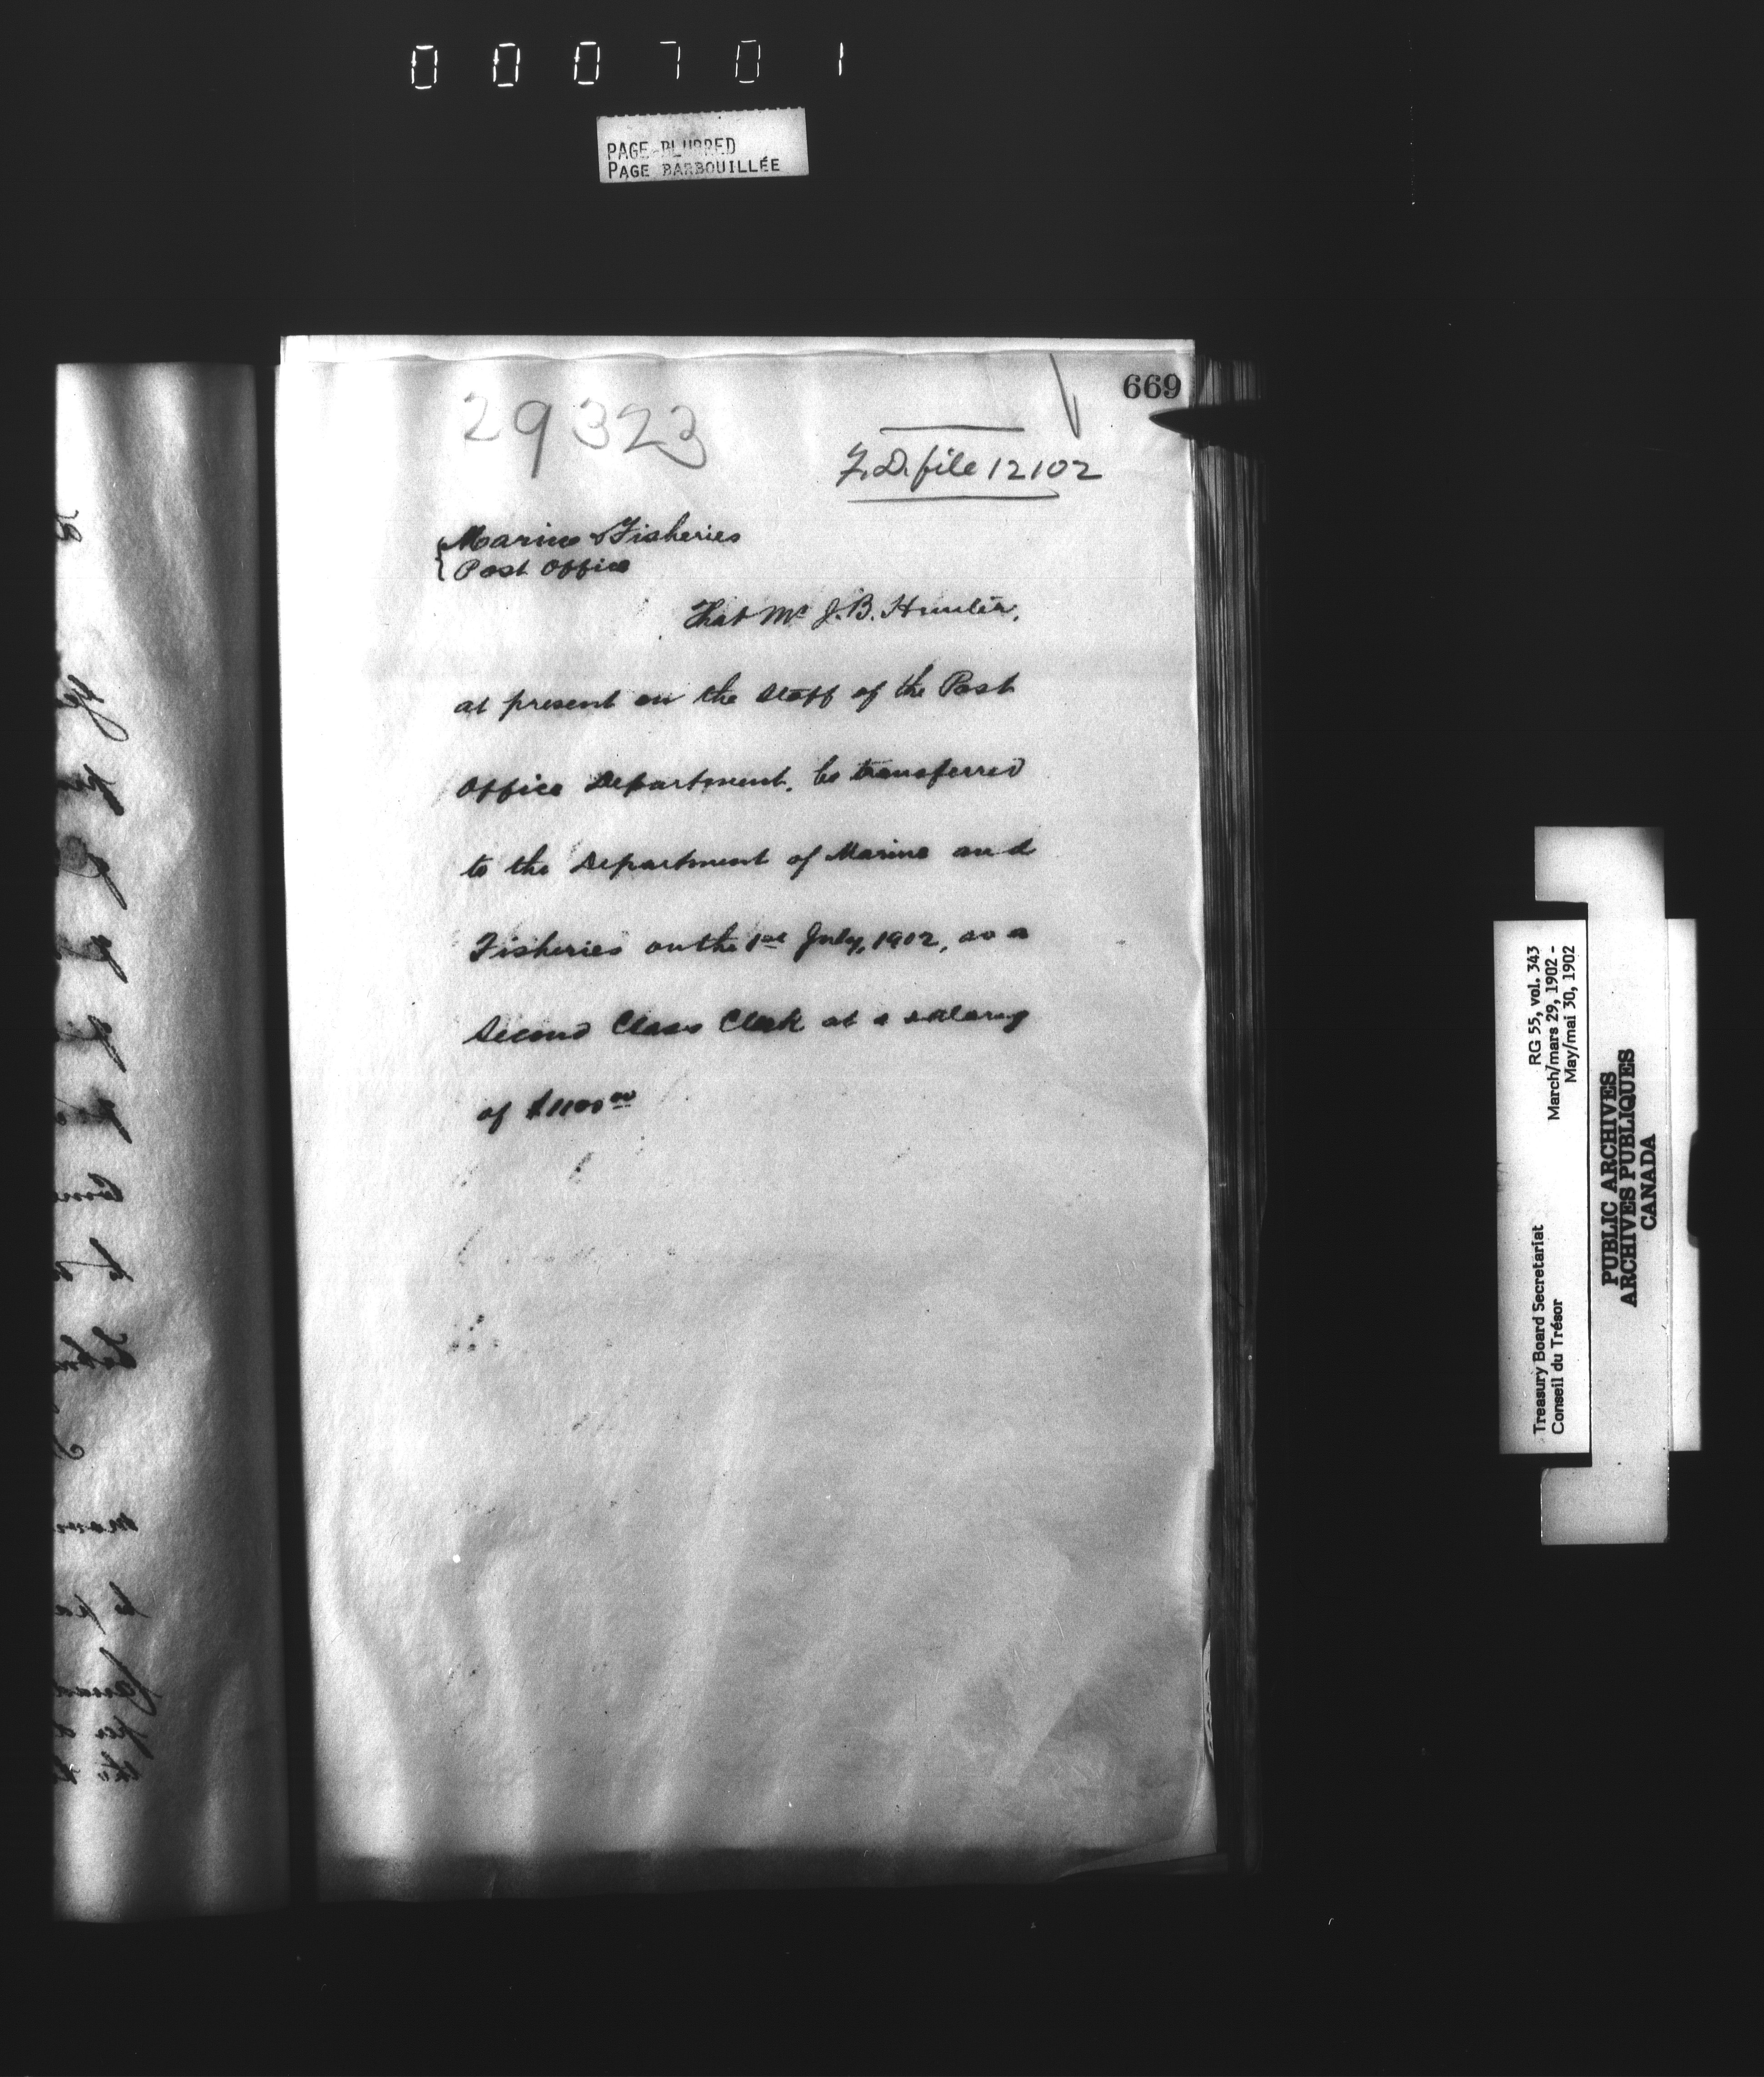 000701
PAGE BLURRED
PAGE BARBOUILLÉE
669
29323
F.D. file 12102
Marine & Fisheries
Post Office
That Mr J. B. Hunter,
at present on the staff of the Post
Office Department, be transferred
to the Department of Marine and
Fisheries on the 1st July, 1902, as a
Second Class Clerk at a salary
of $1100.00
RG 55, vol. 343
March/mars 29, 1902 -
May/mai 30, 1902
Treasury Board Secretariat
Conseil du Trésor
PUBLIC ARCHIVES
ARCHIVES PUBLIQUES
CANADA